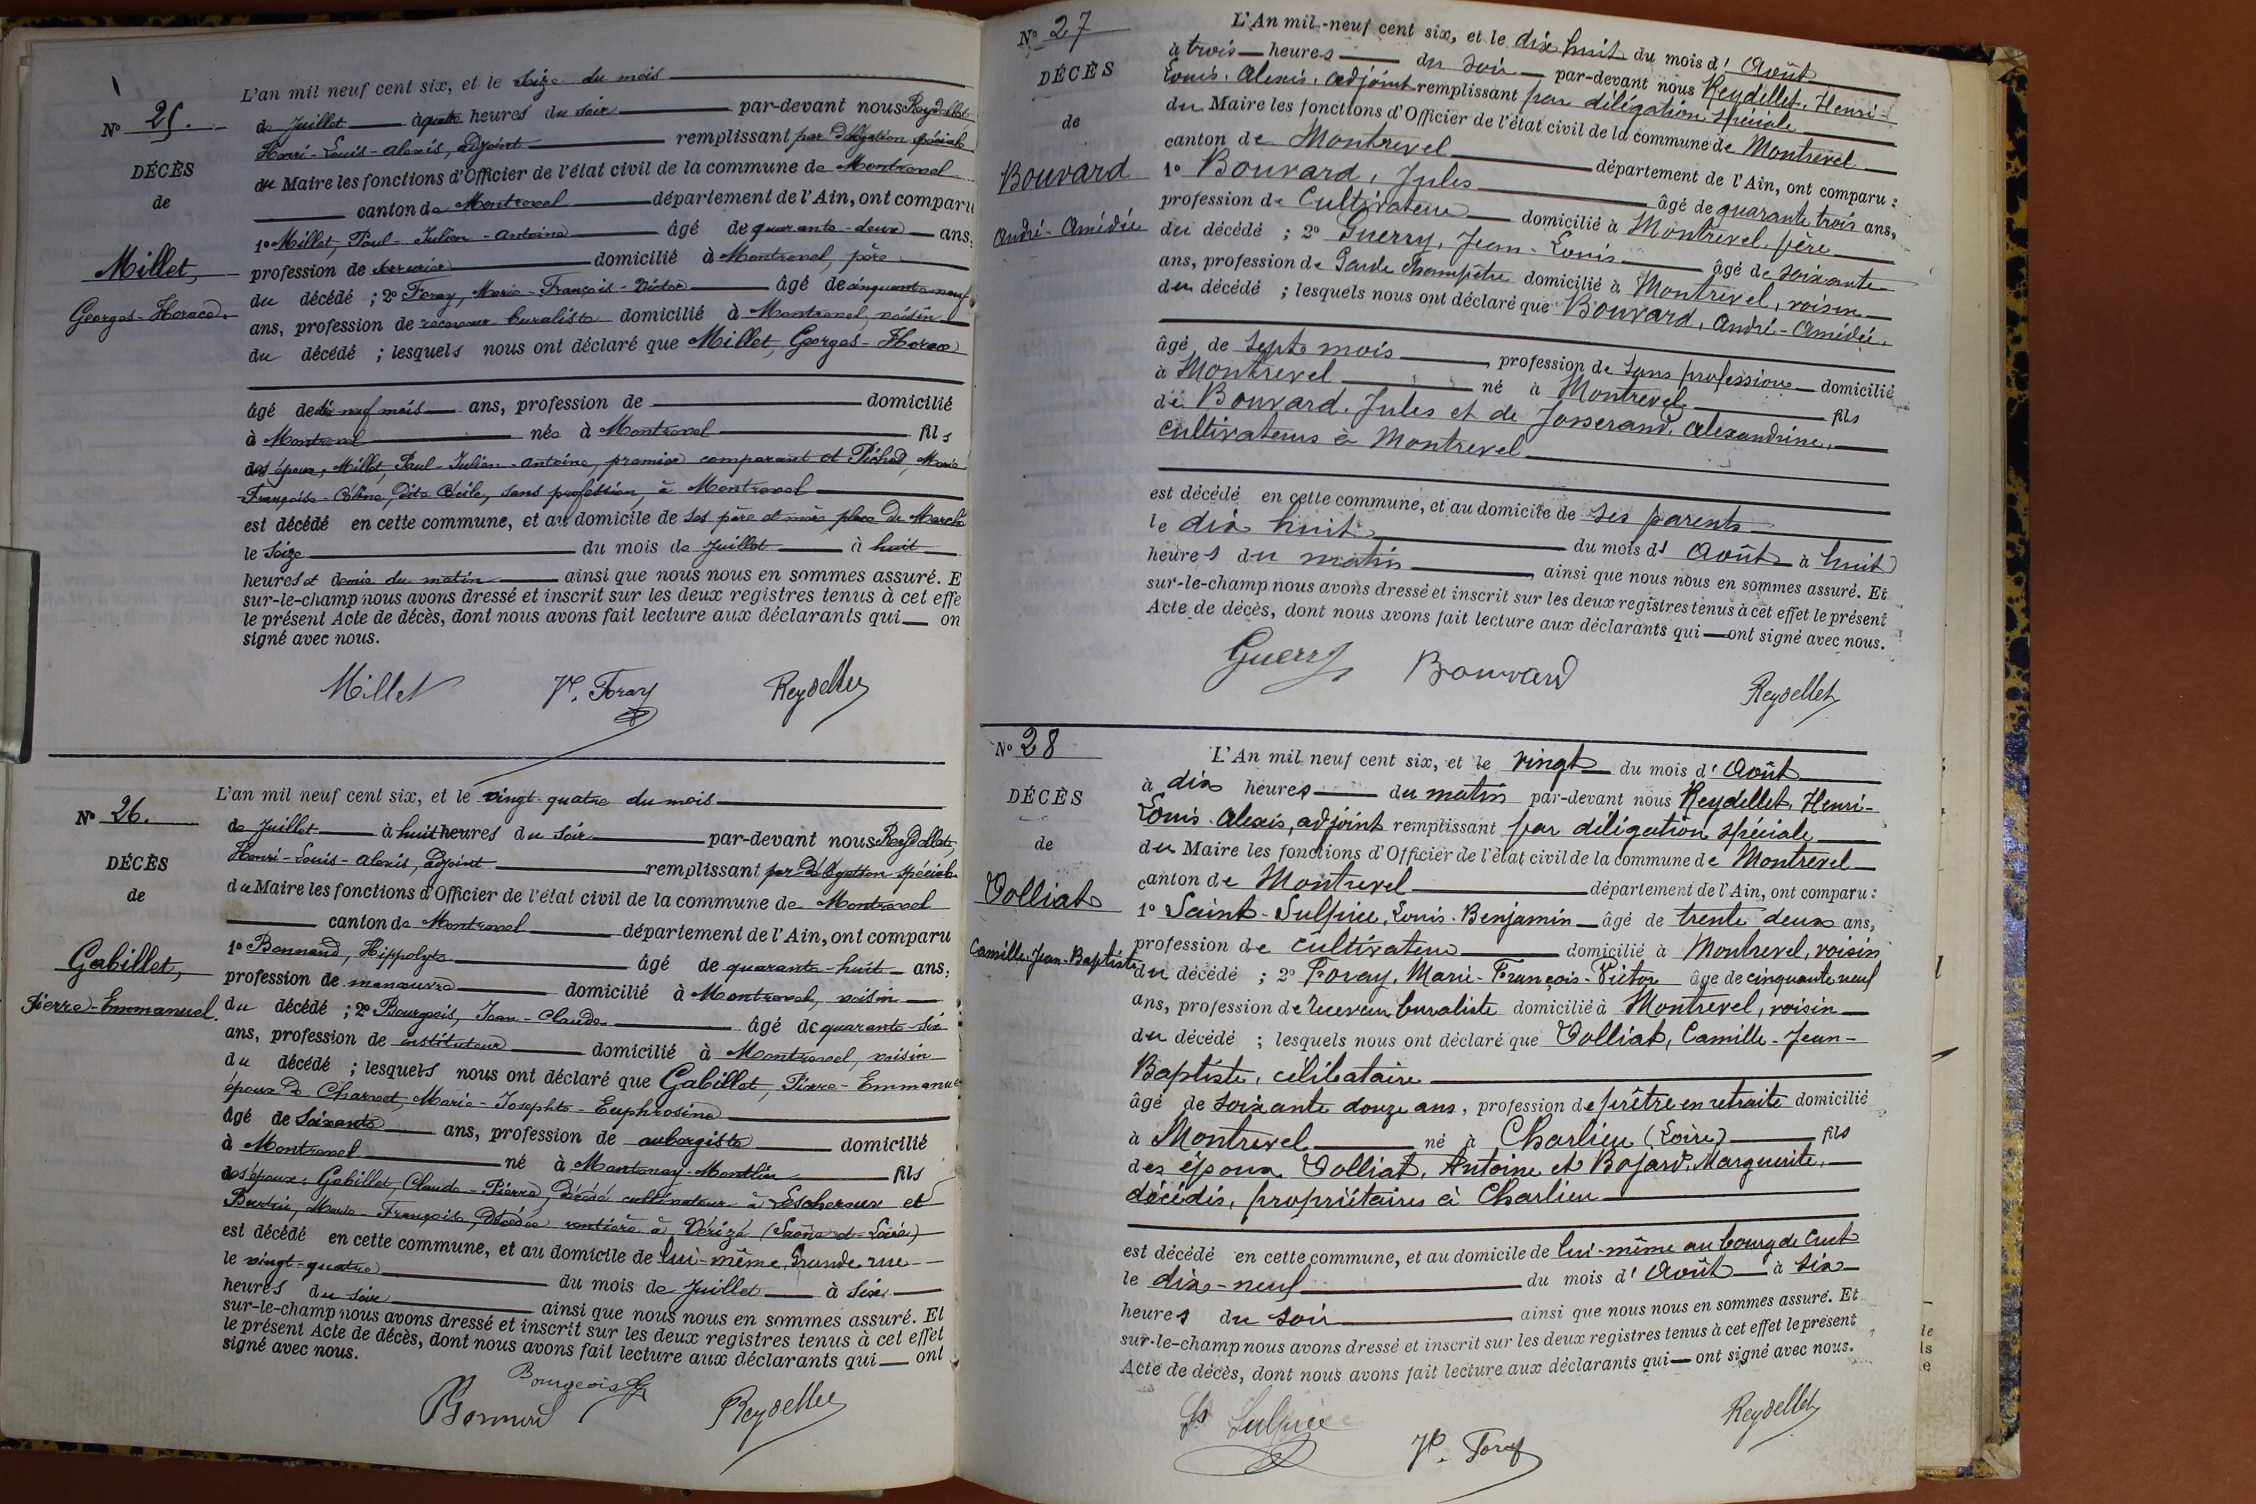 L'an mil neuf cent six, et le seize du mois
N° 25.
de Juillet à quatre heures du soir par-devant nous Reydellet
Henri-Louis-Alexis, adjoint remplissant par délégation spéciale
DÉCÈS
du Maire les fonctions d'Officier de l'état civil de la commune de Montrevel
de
canton de Montrevel département de l'Ain, ont comparu
1° Millet, Paul-Julien-Antoine âgé de quarante-deux ans,
Millet,
profession de domicilié à Montrevel, père
Georges-Horace.
du décédé ; 2° Foray, Marie-François-Victor âgé de cinquante-neuf
ans, profession de receveur buraliste domicilié à Montrevel, voisin
du décédé ; lesquels nous ont déclaré que Millet, Georges-Horace
âgé de dix neuf mois ans, profession de domicilié
à Montrevel née à Montrevel fils
des époux, Millet, Paul-Julien-Antoine, premier comparant et Pichod, Marie
Françoise-Céline, dite Cécile, sans profession, à Montrevel
est décédé en cette commune, et au domicile de ses père et mère place du Marché
le seize du mois de Juillet à huit
heures et demie du matin ainsi que nous nous en sommes assuré. E
sur-le-champ nous avons dressé et inscrit sur les deux registres tenus à cet effe
le présent Acte de décès, dont nous avons fait lecture aux déclarants qui on
signé avec nous.
Millet Vr. Foray Reydellet
L'an mil neuf cent six, et le vingt-quatre du mois
N° 26.
de Juillet à huit heures du soir par-devant nous Reydellet,
Henri-Louis-Alexis, adjoint remplissant par délégation spéciale
DÉCÈS
du Maire les fonctions d'Officier de l'état civil de la commune de Montrevel
de
canton de Montrevel département de l'Ain, ont comparu
1° Bonnard, Hippolyte âgé de quarante-huit ans,
Gabillet,
profession de manœuvre domicilié à Montrevel, voisin
Pierre-Emmanuel.
du décédé ; 2° Bourgeois, Jean-Claude âgé de quarante-six
ans, profession de instituteur domicilié à Montrevel, voisin
du décédé ; lesquels nous ont déclaré que Gabillet, Pierre-Emmanuel
époux de Charvet, Marie-Josephte-Euphrosine
âgé de soixante ans, profession de aubergiste domicilié
à Montrevel né à Mantenay-Montlin fils
des époux, Gabillet, Claude-Pierre, décédé cultivateur à Lescheroux et
Marie-Françoise, décédée rentière à Vérizé (Saône-et-Loire)
est décédé en cette commune, et au domicile de lui-même, Grande rue
le vingt-quatre du mois de Juillet à six
heures du soir ainsi que nous nous en sommes assuré. Et
sur-le-champ nous avons dressé et inscrit sur les deux registres tenus à cet effet
le présent Acte de décès, dont nous avons fait lecture aux déclarants qui ont
signé avec nous.
Bourgeois
Bonnard Reydellet
N° 27
L'An mil-neuf cent six, et le dix huit du mois d' Août
à trois heures du soir par-devant nous Reydellet, Henri-
DÉCÈS
Louis-Alexis, adjoint remplissant par délégation spéciale
du Maire les fonctions d'Officier de l'état civil de la commune de Montrevel
de
canton de Montrevel département de l'Ain, ont comparu :
Bouvard
1° Bouvard, Jules âgé de quarante trois ans,
profession de Cultivateur domicilié à Montrevel, père
André-Amédée
du décédé ; 2° Guerry, Jean-Louis âgé de soixante
ans, profession de Garde champêtre domicilié à Montrevel, voisin
du décédé ; lesquels nous ont déclaré que Bouvard, André-Amédée,
âgé de sept mois, profession de sans profession domicilié
à Montrevel né à Montrevel fils
de Bouvard, Jules et de Josserand, Alexandrine,
cultivateurs à Montrevel
est décédé en cette commune, et au domicile de ses parents
le dix huit du mois d' Août à huit
heures du matin, ainsi que nous nous en sommes assuré. Et
sur-le-champ nous avons dressé et inscrit sur les deux registres tenus à cet effet le présent
Acte de décès, dont nous avons fait lecture aux déclarants qui ont signé avec nous.
Guerry Bouvard Reydellet
N° 28
L'An mil neuf cent six, et le vingt du mois d' Août
à dix heures du matin par-devant nous Reydellet, Henri-
DÉCÈS
Louis-Alexis, adjoint remplissant par délégation spéciale
de
du Maire les fonctions d'Officier de l'état civil de la commune de Montrevel
Volliat
canton de Montrevel département de l'Ain, ont comparu :
1° Saint-Sulpice, Louis-Benjamin âgé de trente deux ans,
Camille-Jean-Baptiste
profession de cultivateur domicilié à Montrevel, voisin
du décédé ; 2° Foray, Marie-François-Victor âgé de cinquante neuf
ans, profession de receveur buraliste domicilié à Montrevel, voisin
du décédé ; lesquels nous ont déclaré que Volliat, Camille-Jean-
Baptiste, célibataire
âgé de soixante douze ans, profession de prêtre en retraite domicilié
à Montrevel né à Charlieu (Loire) fils
des époux Volliat, Antoine et Bojard, Marguerite,
décédés, propriétaires à Charlieu
est décédé en cette commune, et au domicile de lui-même au bourg de Cuet
le dix-neuf du mois d' Août à six
heures du soir ainsi que nous nous en sommes assuré. Et
sur-le-champ nous avons dressé et inscrit sur les deux registres tenus à cet effet le présent
Acte de décès, dont nous avons fait lecture aux déclarants qui ont signé avec nous.
St Sulpice Vr. Foray Reydellet